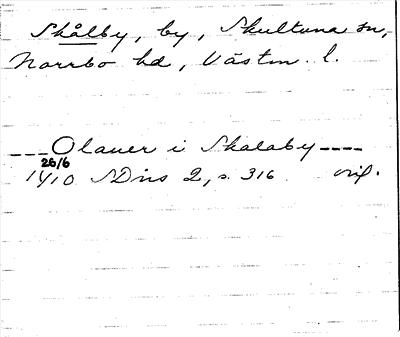 Skålby, by, Skultuna sn,
Norrbo hd, Västm. l.
---Olauer i Skalaby----
26/6
1410 SDns 2, s. 316 orig.